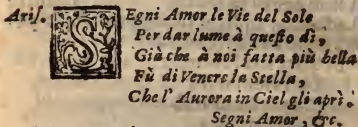 Aris. SEgni Amor le Vie del Sole
Per dar lume à questo dì,
Già che à noi fatta più bella
Fù di Venere la Stella,
Che l' Aurora in Ciel gli aprì.
Segni Amor, &c.